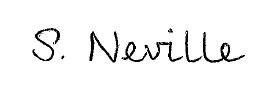 S. Neville